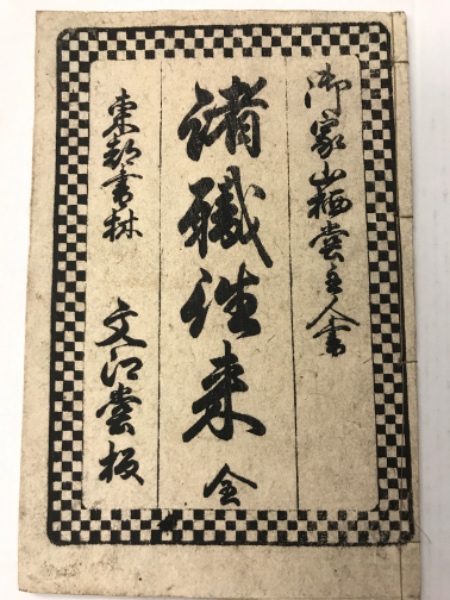 御家山栖堂主人書
諸職往来 全
東都書林 文江堂板